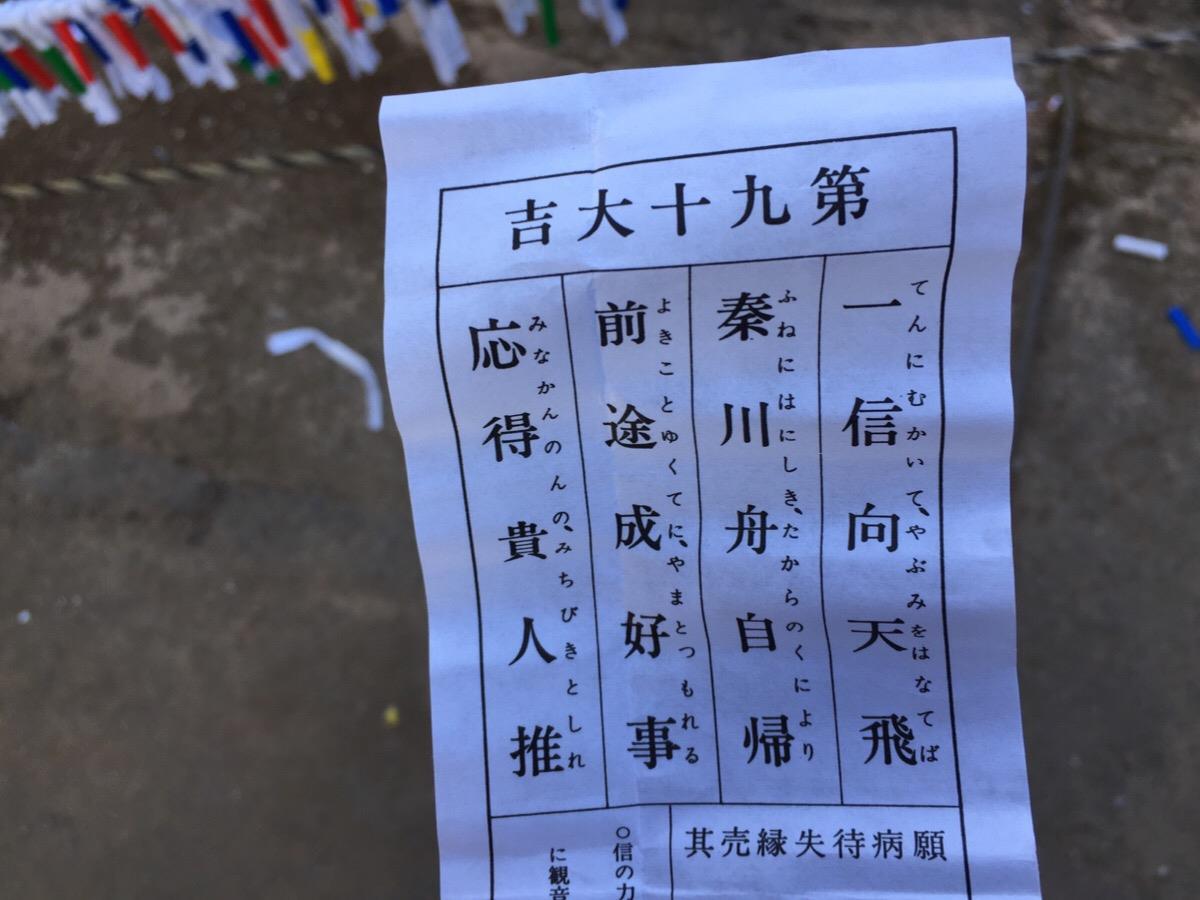 第九十大吉
てんにむかいて、やぶみをはなてば
一信向天飛
ふねにはにしき、たからのくにより
秦川舟自帰
よきことゆくてに、やまとつもれる
前途成好事
みなかんのんの、みちびきとしれ
応得貴人推
願病待失縁売其
○信の力
に観音